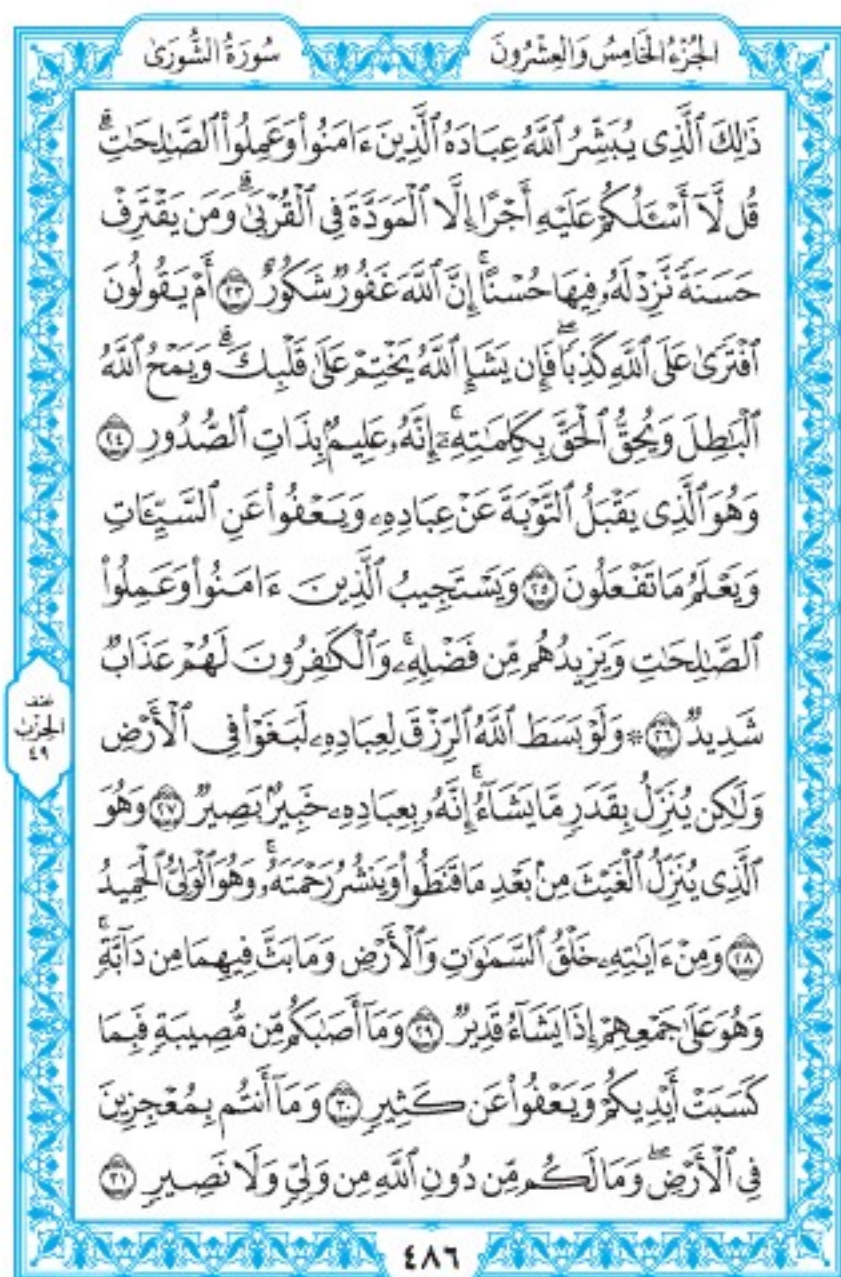 الجُزْءُ الخَامِسُ وَالعِشْرُونَ
سُورَةُ الشُّورَىٰ
ذَٰلِكَ ٱلَّذِى يُبَشِّرُ ٱللَّهُ عِبَادَهُ ٱلَّذِينَ ءَامَنُوا۟ وَعَمِلُوا۟ ٱلصَّـٰلِحَـٰتِ ۗ
قُل لَّآ أَسْـَٔلُكُمْ عَلَيْهِ أَجْرًا إِلَّا ٱلْمَوَدَّةَ فِى ٱلْقُرْبَىٰ ۗ وَمَن يَقْتَرِفْ
حَسَنَةً نَّزِدْ لَهُۥ فِيهَا حُسْنًا ۚ إِنَّ ٱللَّهَ غَفُورٌ شَكُورٌ ٢٣ أَمْ يَقُولُونَ
ٱفْتَرَىٰ عَلَى ٱللَّهِ كَذِبًا ۖ فَإِن يَشَإِ ٱللَّهُ يَخْتِمْ عَلَىٰ قَلْبِكَ ۗ وَيَمْحُ ٱللَّهُ
ٱلْبَـٰطِلَ وَيُحِقُّ ٱلْحَقَّ بِكَلِمَـٰتِهِۦٓ ۚ إِنَّهُۥ عَلِيمٌۢ بِذَاتِ ٱلصُّدُورِ ٢٤
وَهُوَ ٱلَّذِى يَقْبَلُ ٱلتَّوْبَةَ عَنْ عِبَادِهِۦ وَيَعْفُوا۟ عَنِ ٱلسَّيِّـَٔاتِ
وَيَعْلَمُ مَا تَفْعَلُونَ ٢٥ وَيَسْتَجِيبُ ٱلَّذِينَ ءَامَنُوا۟ وَعَمِلُوا۟
ٱلصَّـٰلِحَـٰتِ وَيَزِيدُهُم مِّن فَضْلِهِۦ ۚ وَٱلْكَـٰفِرُونَ لَهُمْ عَذَابٌ
شَدِيدٌ ٢٦ ۞ وَلَوْ بَسَطَ ٱللَّهُ ٱلرِّزْقَ لِعِبَادِهِۦ لَبَغَوْا۟ فِى ٱلْأَرْضِ
وَلَـٰكِن يُنَزِّلُ بِقَدَرٍ مَّا يَشَآءُ ۚ إِنَّهُۥ بِعِبَادِهِۦ خَبِيرٌۢ بَصِيرٌ ٢٧ وَهُوَ
ٱلَّذِى يُنَزِّلُ ٱلْغَيْثَ مِنۢ بَعْدِ مَا قَنَطُوا۟ وَيَنشُرُ رَحْمَتَهُۥ ۚ وَهُوَ ٱلْوَلِىُّ ٱلْحَمِيدُ
٢٨ وَمِنْ ءَايَـٰتِهِۦ خَلْقُ ٱلسَّمَـٰوَٰتِ وَٱلْأَرْضِ وَمَا بَثَّ فِيهِمَا مِن دَآبَّةٍ ۚ
وَهُوَ عَلَىٰ جَمْعِهِمْ إِذَا يَشَآءُ قَدِيرٌ ٢٩ وَمَآ أَصَـٰبَكُم مِّن مُّصِيبَةٍ فَبِمَا
كَسَبَتْ أَيْدِيكُمْ وَيَعْفُوا۟ عَن كَثِيرٍ ٣٠ وَمَآ أَنتُم بِمُعْجِزِينَ
فِى ٱلْأَرْضِ ۖ وَمَا لَكُم مِّن دُونِ ٱللَّهِ مِن وَلِىٍّ وَلَا نَصِيرٍ ٣١
الحِزْبِ
٤٩
٤٨٦